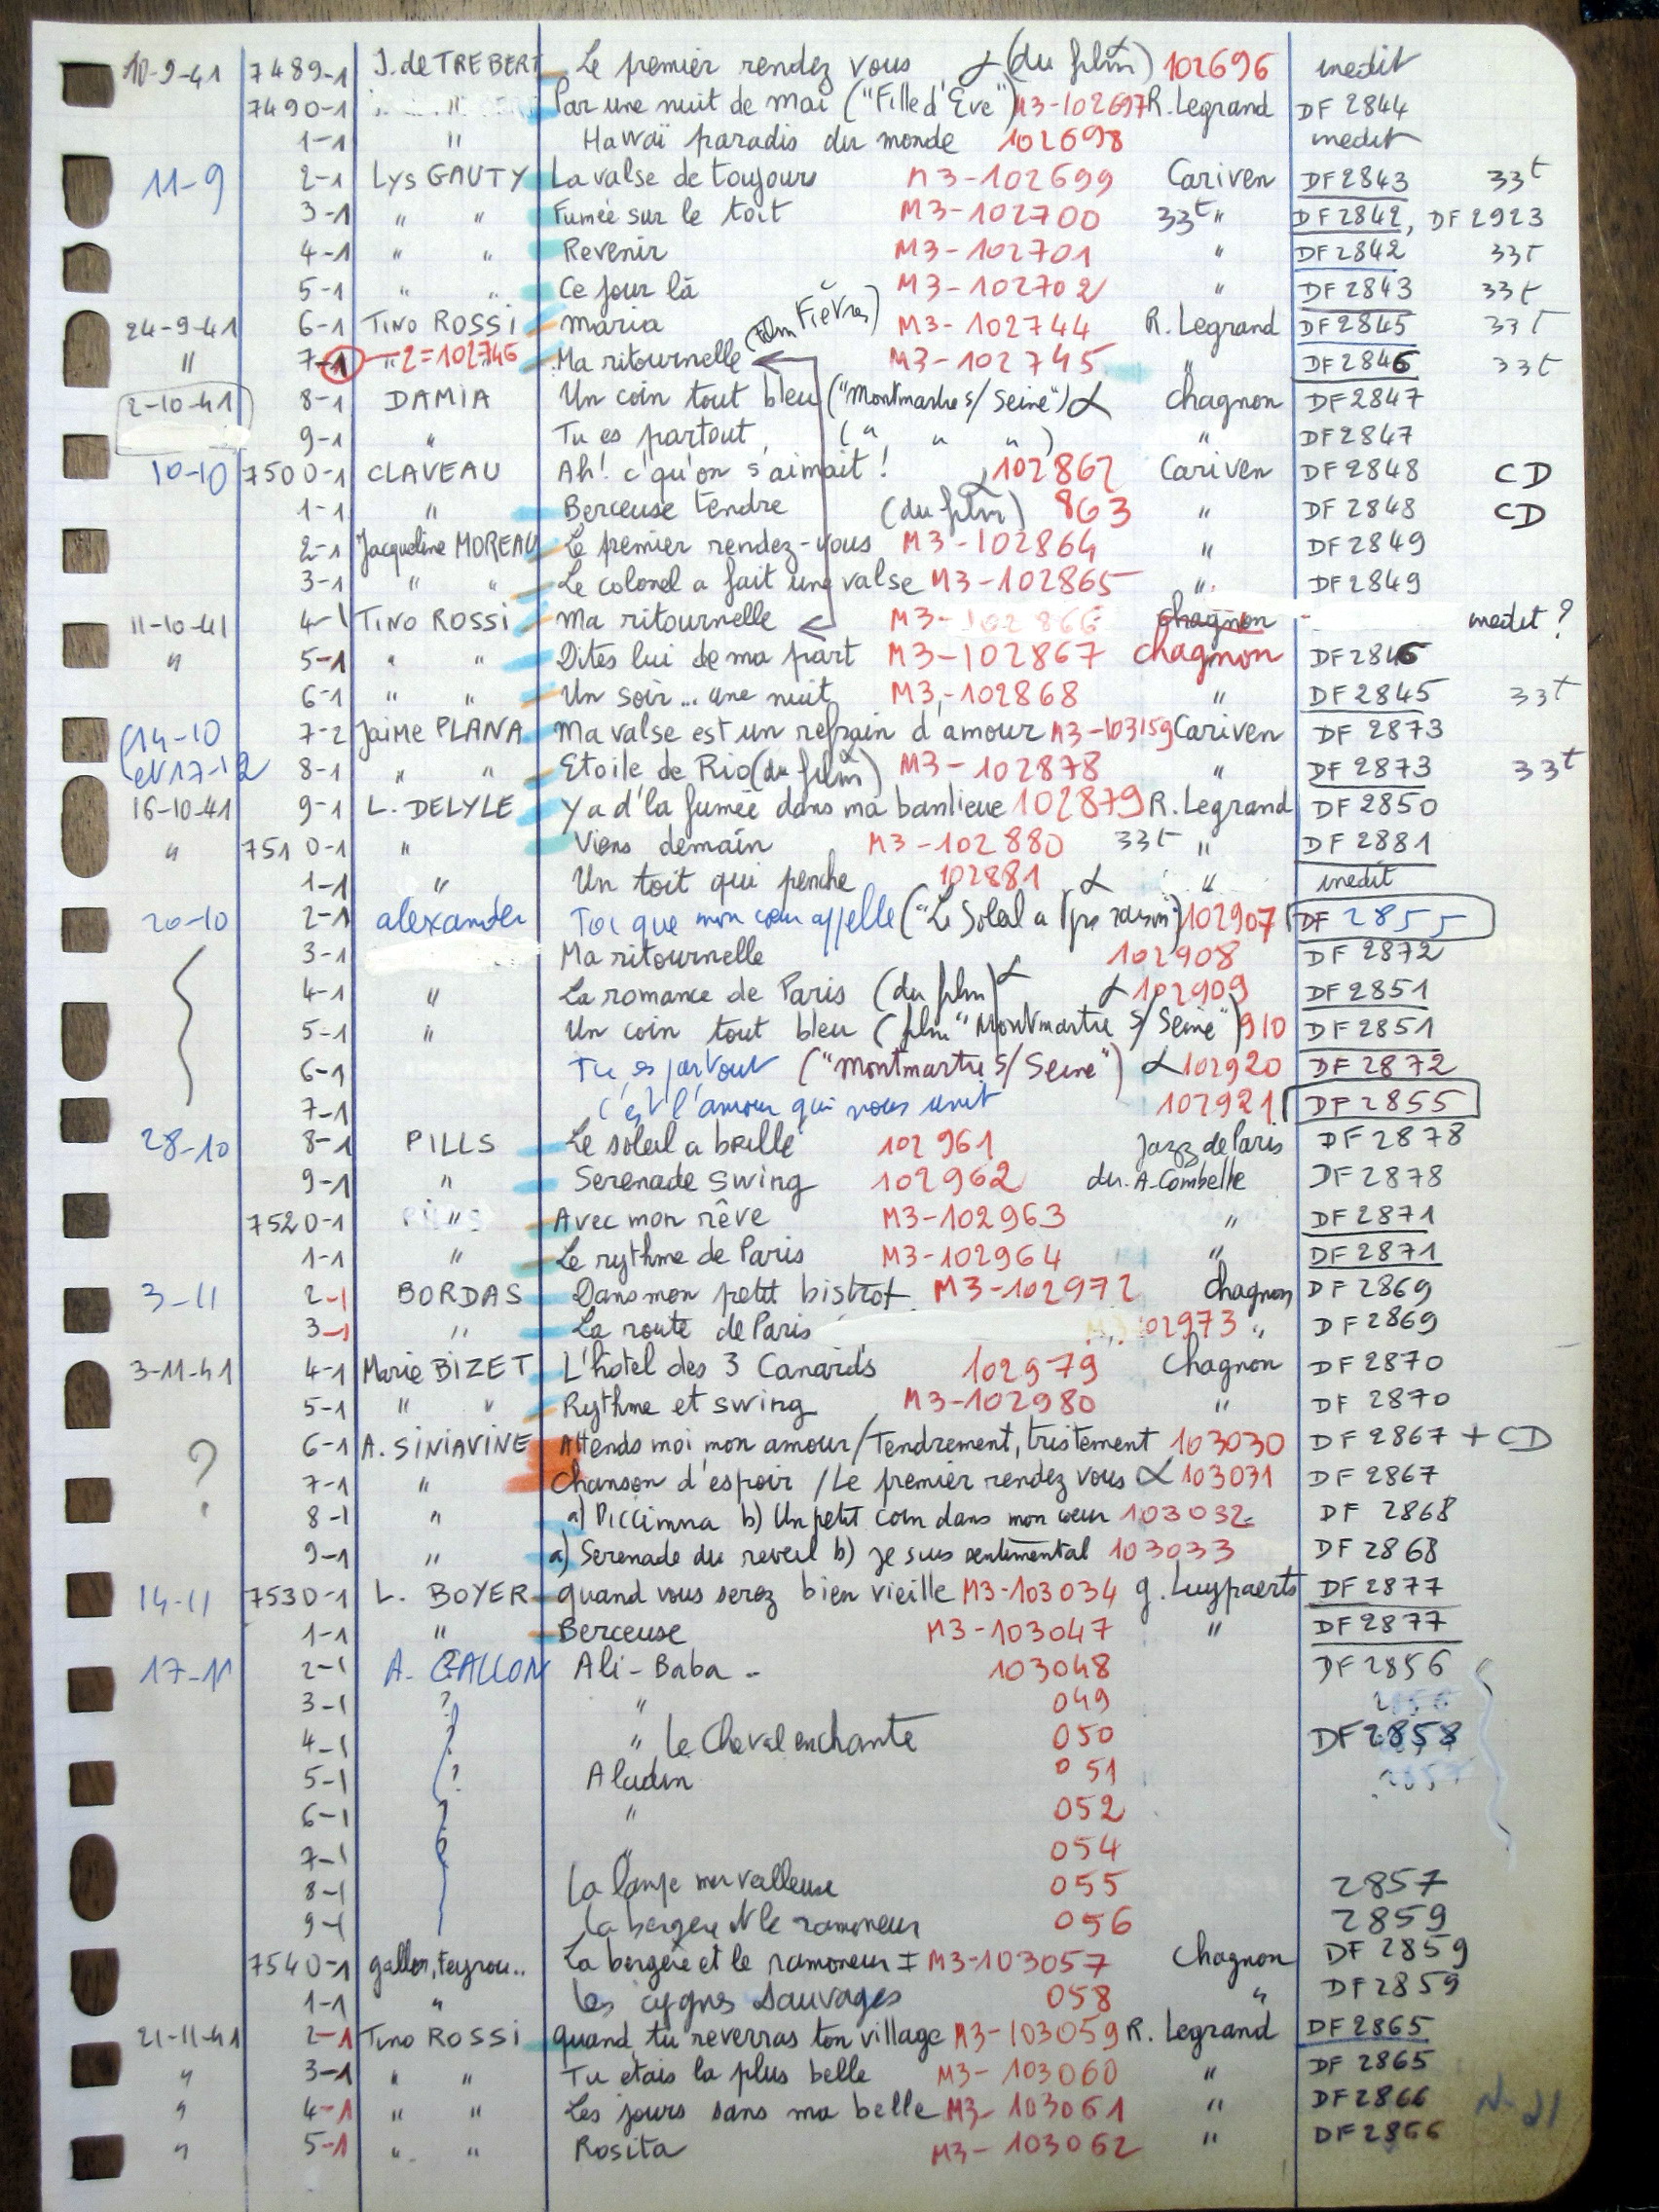 10-9-41 7489-1 J. de TREBERT Le premier rendez vous α (du film) 102696 inedit
7490-1 " Par une nuit de mai ("Fille d'Eve") M3-102697 R. Legrand DF 2844
1-1 " Hawaï paradis du monde 102698 inedit
11-9 2-1 Lys GAUTY La valse de toujours M3-102699 Cariven DF 2843 33t
3-1 " " Fumée sur le toit M3-102700 33t " DF 2842, DF 2923
4-1 " " Revenir M3-102701 " DF 2842 33t
5-1 " " Ce jour là M3-102702 " DF 2843 33t
24-9-41 6-1 Tino ROSSI Maria M3-102744 R. Legrand DF 2845 33t
" 7-1 " 2=102746 Ma ritournelle (Film Fièvres) M3-102745 " DF 2846 33t
2-10-41 8-1 DAMIA Un coin tout bleu ("Montmartre s/ Seine") α Chagnon DF 2847
9-1 " Tu es partout ( " " " ) " DF 2847
10-10 7500-1 CLAVEAU Ah! c'qu'on s'aimait! 102862 Cariven DF 2848 CD
1-1 " Berceuse tendre (du film) 863 " DF 2848 CD
2-1 Jacqueline MOREAU Le premier rendez-vous M3-102864 " DF 2849
3-1 " " Le colonel a fait une valse M3-102865 " DF 2849
11-10-41 4-1 TINO ROSSI Ma ritournelle M3-102866 chagnon - inedit ?
" 5-1 " " Dites lui de ma part M3-102867 chagnon DF 2846
6-1 " " Un soir... une nuit M3-102868 " DF 2845 33t
(14-10 7-2 Jaime PLANA Ma valse est un refrain d'amour M3-103159 Cariven DF 2873
et 17-12 8-1 " " Etoile de Rio (du film) M3-102878 " DF 2873 33t
16-10-41 9-1 L. DELYLE Y a d'la fumée dans ma banlieue 102879 R. Legrand DF 2850
" 7510-1 " Viens demain M3-102880 33t " DF 2881
1-1 " Un toit qui penche 102881 α " inedit
20-10 2-1 alexander Toi que mon cœur appelle ("Le Soleil a tjrs raison") 102907 DF 2855
3-1 Ma ritournelle 102908 DF 2872
4-1 " La romance de Paris (du film) α α 102909 DF 2851
5-1 " Un coin tout bleu (film "Montmartre s/ Seine") 910 DF 2851
6-1 Tu es partout ("Montmartre s/ Seine") α 102920 DF 2872
7-1 c'est l'amour qui nous unit 102921 DF 2855
28-10 8-1 PILLS Le soleil a brillé 102961 Jazz de Paris DF 2878
9-1 " Serenade swing 102962 dir. A. Combelle DF 2878
7520-1 " Avec mon rêve M3-102963 " DF 2871
1-1 " Le rythme de Paris M3-102964 " DF 2871
3-11 2-1 BORDAS Dans mon petit bistrot M3-102972 Chagnon DF 2869
3-1 " La route de Paris 02973 " DF 2869
3-11-41 4-1 Marie BIZET L'hôtel des 3 Canards 102979 Chagnon DF 2870
5-1 " " Rythme et swing M3-102980 " DF 2870
? 6-1 A. SINIAVINE Attends moi mon amour/Tendrement, tristement 103030 DF 2867 + CD
7-1 " Chanson d'espoir /Le premier rendez vous α 103031 DF 2867
8-1 " a) Piccinina b) Un petit coin dans mon cœur 103032 DF 2868
9-1 " a) Serenade du reveil b) je suis sentimental 103033 DF 2868
14-11 7530-1 L. BOYER quand vous serez bien vieille M3-103034 g. Luypaerts DF 2877
1-1 " Berceuse M3-103047 " DF 2877
17-11 2-1 A. GALLON Ali-Baba - 103048 DF 2856
3-1 ? " 049
4-1 " Le Cheval enchanté 050 DF 2858
5-1 ? Aladin 051 2857
6-1 " 052
7-1 " 054
8-1 La lampe merveilleuse 055 2857
9-1 la bergère et le ramoneur 056 2859
7540-1 gallon, Feyrou.. La bergère et le ramoneur I M3-103057 Chagnon DF 2859
1-1 " Les cygnes sauvages 058 " DF 2859
21-11-41 2-1 Tino ROSSI quand tu reverras ton village M3-103059 R. Legrand DF 2865
" 3-1 " " Tu etais la plus belle M3-103060 " DF 2865
" 4-1 " " Les jours sans ma belle M3-103061 " DF 2866
" 5-1 " " Rosita M3-103062 " DF 2866